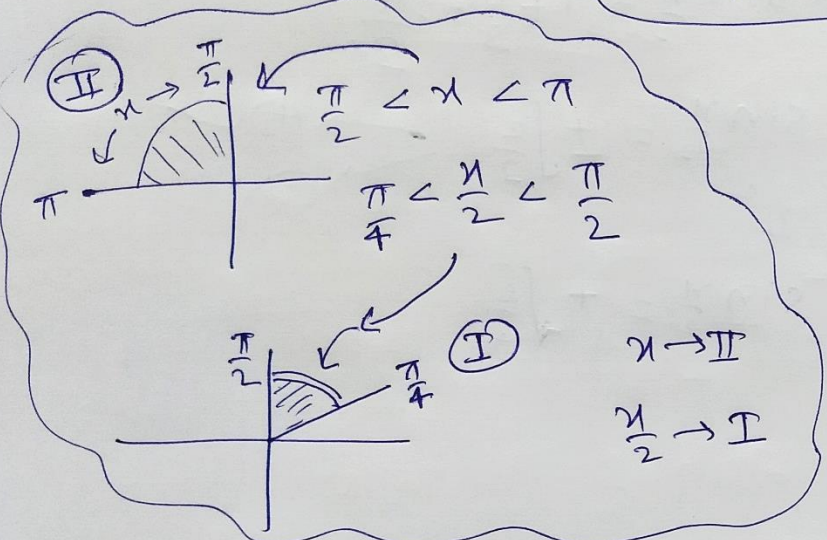 II
x → π/2
π
π/2 < x < π
π/4 < x/2 < π/2
π/2
π/4
I
x → II
x/2 → I